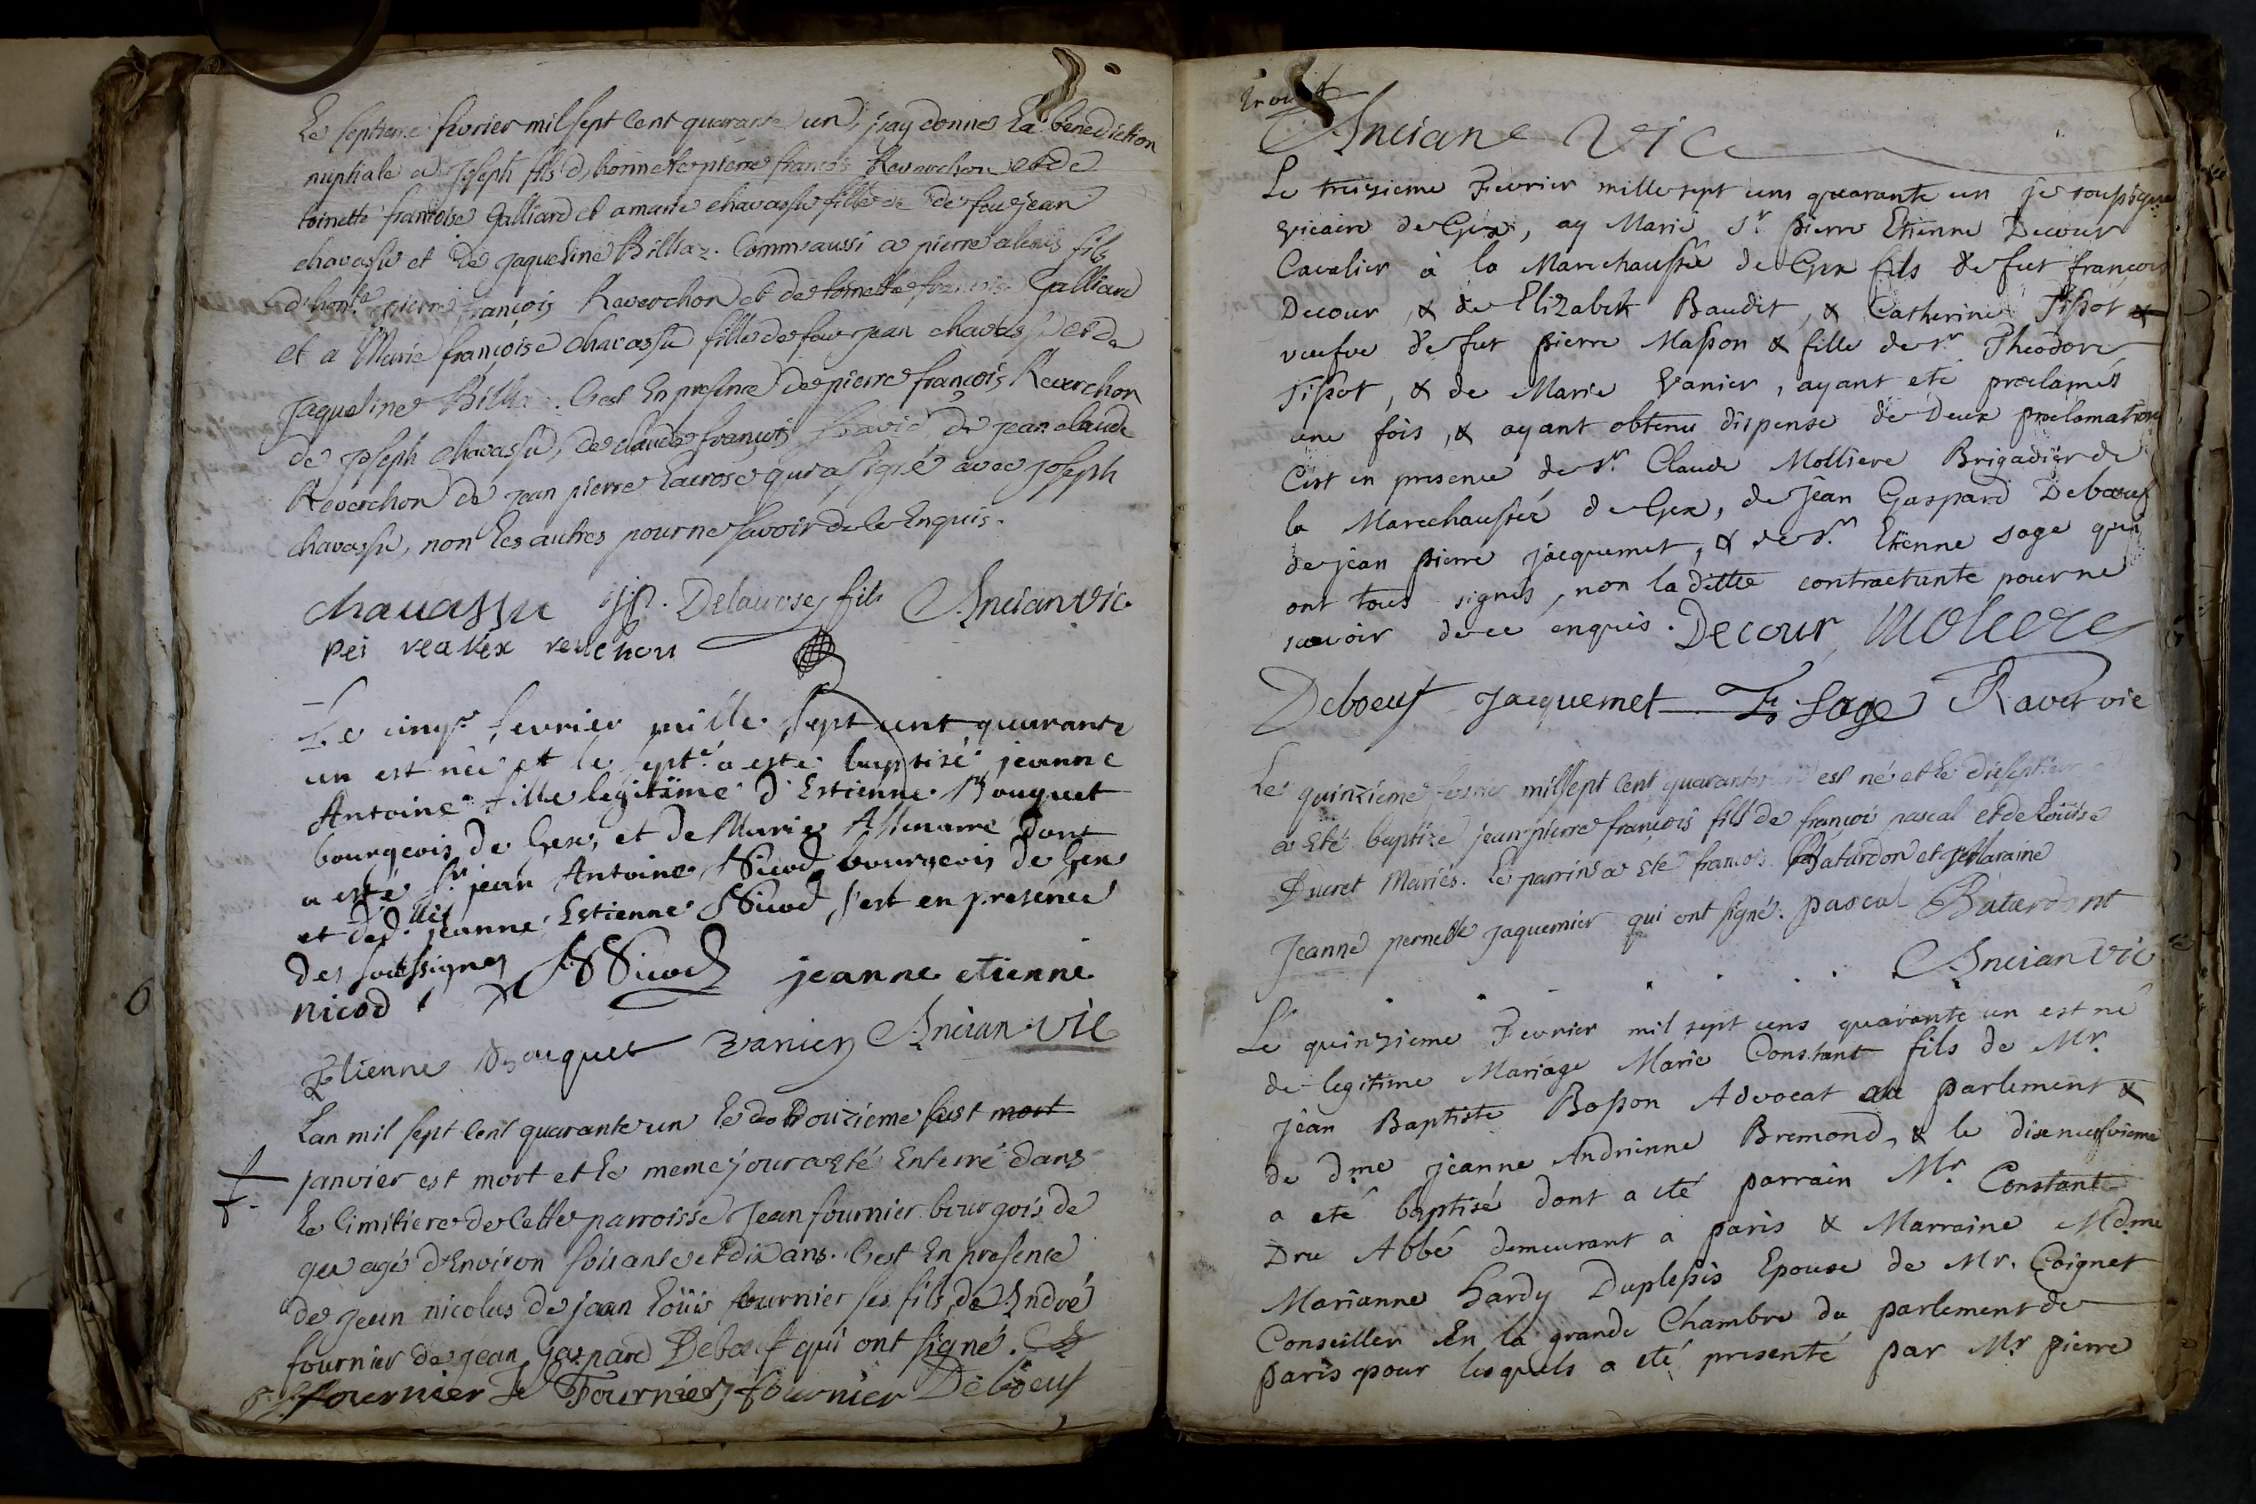 Le septieme fevrier mil sept cent quarante un, j'ay donné la benediction
nuptiale a Joseph fils d'honnete pierre françois Reverchon et de
toinette francoise Galliard et a marie chavassu fille de feu jean
chavassu et de jaqueline Billiaz. Comm'aussi a pierre alexis fils
d'hon.te pierre françois Reverchon et de toinette francoise Galliard
et a Marie françoise chavassu fille de feu jean chavassu et de
jaqueline Billia. C'est En presence de pierre françois Reverchon
de joseph chavassu, de claude françois david de jean claude
Reverchon de jean pierre Lacrose qui a signé avec joseph
chavassu, non les autres pour ne savoir de ce Enquis.
chavassu jp. Delacrose fils Ancian vic.
Le cinq.e fevrier mille sept cent quarante
un est née et le sept.e a esté baptisé jeanne
Antoine fille legitime d'Estienne Bouquet
bourgeois de Gex, et de Marie dont
a esté S.r jean Antoine Nicod bourgeois de Gex
et de d.lle jeanne Estienne Nicod, c'est en presence
des soussignes Nicod jeanne etienne
nicod
Etienne Bouquet vanier Ancian vic
L'an mil sept cent quarante un le douzieme est mort
janvier est mort et le meme jour a eté Enterré dans
le Cimitiere de cette parroisse Jean fournier bourgois de
gex agé d'Environ soixante et dix ans. C'est En presence
de jean nicolas de jean Loüis fournier ses fils, de André
fournier de jean Gaspard Deboeuf qui ont signé.
fournier Fournier fournier Deboeuf
Ancian vic
Le treizieme Fevrier mille sept cens quarante un je soussigné
vicaire de Gex, ay Marié S.r Pierre Etienne Decour
Cavalier à la Marechaussée de Gex fils de fut françois
Decour, & de Elizabeth Baudit, & Catherine Tissot &
veufve de fut pierre Masson & fille de S.r Theodore
Tissot, & de Marie Vanier, ayant eté proclamés
une fois, & ayant obtenu dispense de Deux proclamations
C'est en presence de S.r Claude Molliere Brigadier de
la Marechaussée de Gex, de Jean Gaspard Deboeuf
de jean pierre jacquemet, & de S.r Etienne sage qui
ont tous signés, non la ditte contractante pour ne
savoir de ce enquis. Decour Moliere
Deboeuf Jacquemet E. Sage Ravet vic
Le quinzieme fevrier mil sept cent quarante est né et le dixseptieme
a eté baptizé jean pierre françois fils de françois pascal et de Loüise
Ducret Mariés. Le parrin a eté francois Batardon et Maraine
Jeanne pernette jaquemier qui ont signé. pascal Batardont
Ancian vic
Le quinzieme Fevrier mil sept cens quarante un est né
de legitime Mariage Marie Constant fils de Mr.
jean Baptiste Bosson Advocat au parlement &
de dme jeanne Andrienne Bremond, & le dixneufvieme
a eté baptisé dont a eté parrain Mr. Constant
Dru Abbé demeurant a paris & Marraine Mdme
Marianne hardy Duplessis Epouse de Mr. Coignet
Conseiller En la grande Chambre du parlement de
paris pour lesquels a eté presenté par Mr pierre